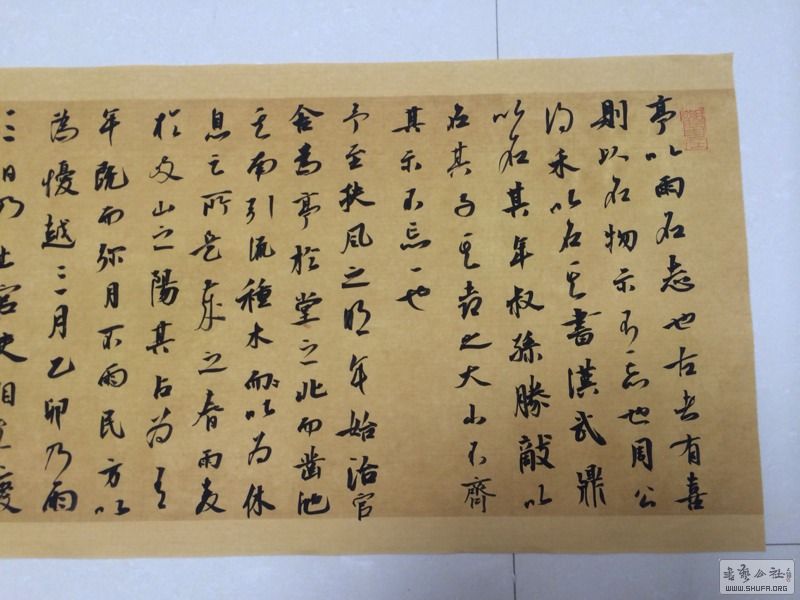 亭以雨名志也古者有喜
則以名物示不忘也周公
得禾以名其書漢武鼎
以名其年叔孫勝敵以
名其子其喜之大小不齊
其示不忘一也
予至扶風之明年始治官
舍為亭於堂之北而鑿池
其南引流種木以為休
息之所是歲之春雨麥
於岐山之陽其占為有
年既而弥月不雨民方以
為懮越三月乙卯乃雨
三日乃
书艺公社
WWW.SHUFA.ORG